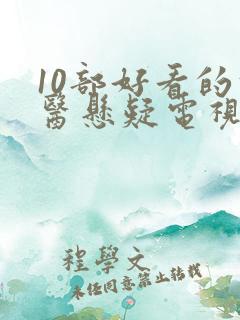 10部好看的
醫懸疑電視
程學文
未任同意禁止轉載